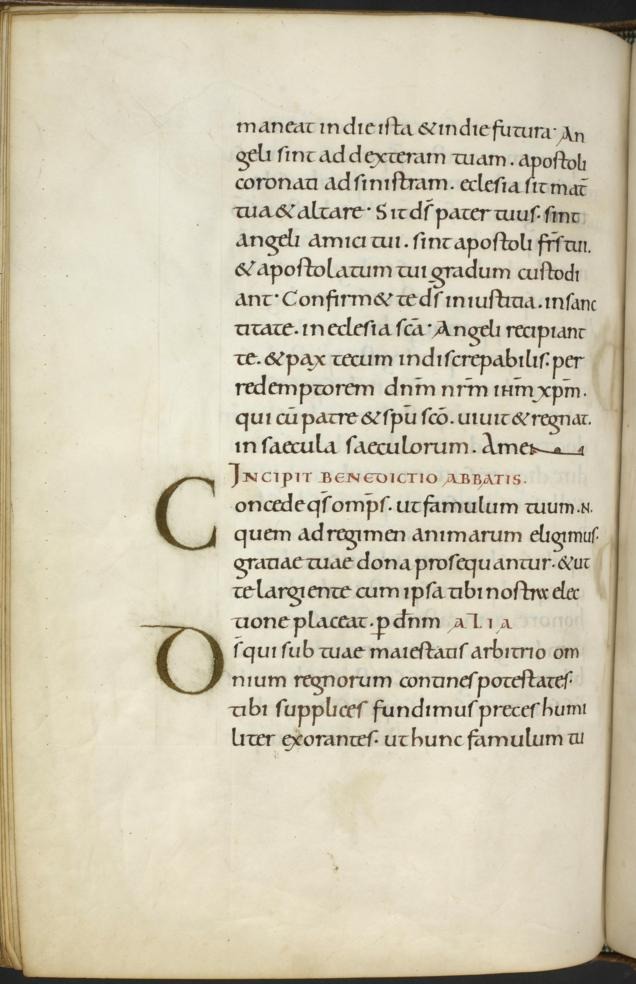 maneat in die ista & in die futura· An
geli sint ad dexteram tuam. apostoli
coronati ad sinistram. eclesia sit mat̄
tua & altare· Sit ds̄ pater tuus· sint
angeli amici tui. sint apostoli fr̄s tui.
& apostolatum tui gradum custodi
ant· Confirm& te ds̄ in iustitia. in sanc
titate. in eclesia sc̄a· Angeli recipiant
te. & pax tecum indiscrepabilis· per
redemptorem dn̄m nr̄m ihm̄ xpm̄.
qui cū patre & spū scō. uiuit & regnat.
in saecula saeculorum. Amen
INCIPIT BENEDICTIO ABBATIS.
Concede qs̄ omp̄s. ut famulum tuum .N.
quem ad regimen animarum eligimus·
gratiae tuae dona prosequantur· & ut
te largiente cum ipsa tibi nostra elec
tione placeat. p̱ dn̄m ALIA
Ds̄ qui sub tuae maiestatis arbitrio om
nium regnorum contines potestates·
tibi supplices fundimus preces humi
liter exorantes· ut hunc famulum tu